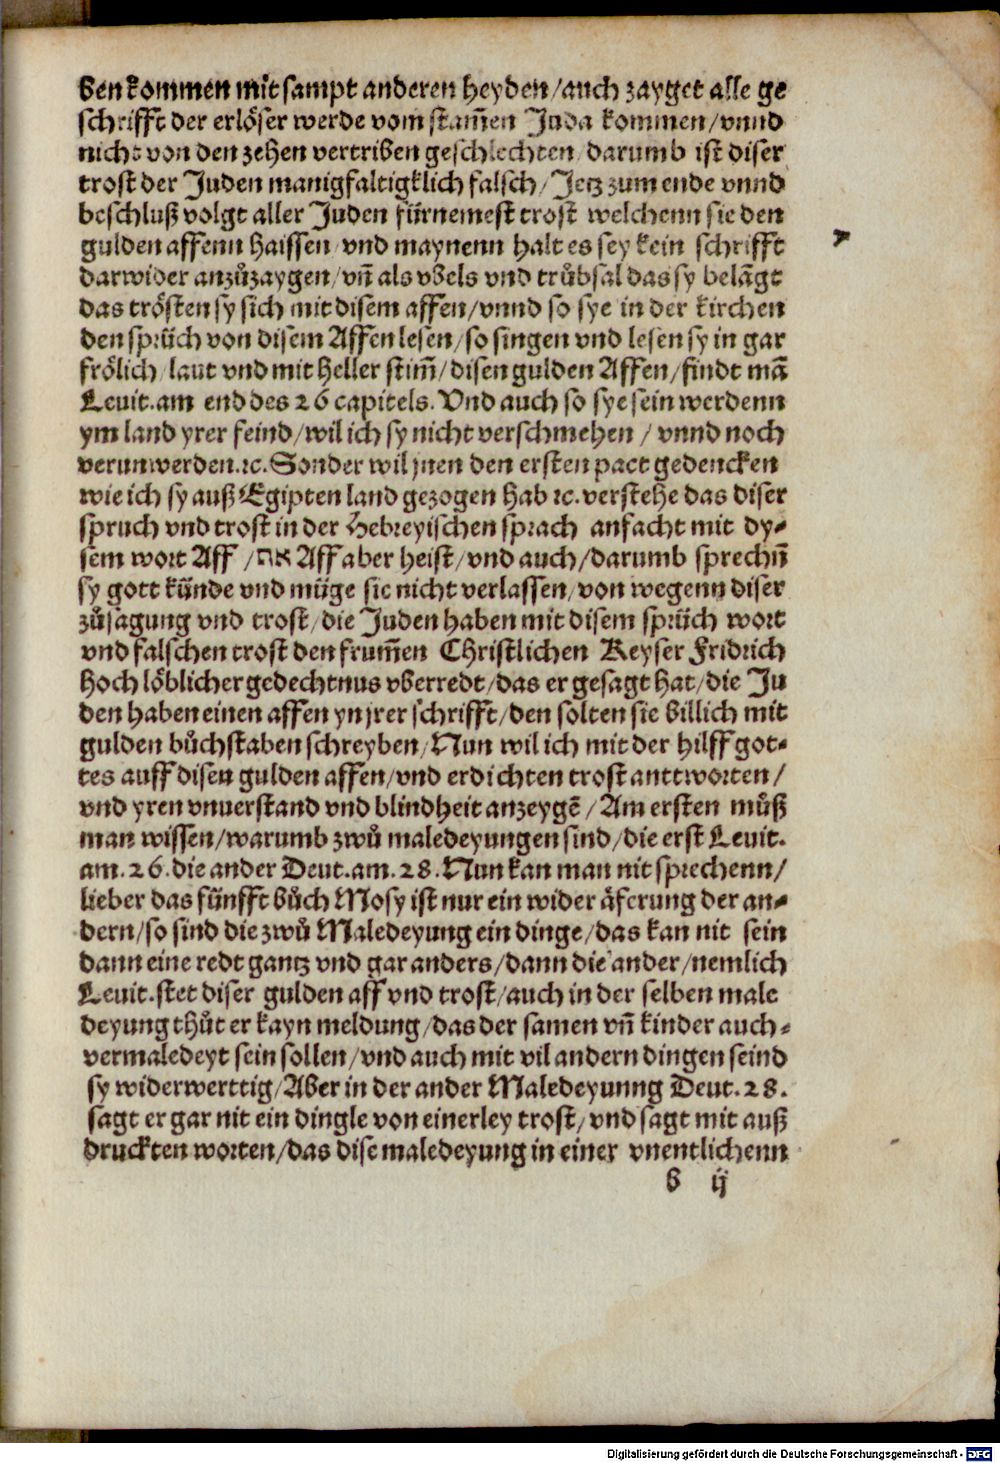 ben kommen mit sampt anderen heyden/auch zayget alle ge
schrifft der erlöser werde vom stam̃en Juda kommen/vnnd
nicht von den zehen vertriben geschlechten/darumb ist diser
trost der Juden manigfaltigklich falsch/Jetz zum ende vnnd
beschluß volgt aller Juden fürnemest trost welchenn sie den
gulden affenn haissen/vnd maynenn halt es sey kein schrifft
darwider anzůzaygen/vñ als vbels vnd trůbsal das sy belãgt
das trösten sy sich mit disem affen/vnnd so sye in der kirchen
den sprüch von disem Affen lesen/so singen vnd lesen sy in gar
frölich/laut vnd mit heller stim̃/disen gulden Affen/findt mã
Leuit.am end des 26 capitels. Vnd auch so sye sein werdenn
ym land yrer feind/wil ich sy nicht verschmehen/vnnd noch
verunwerden.ꝛc.Sonder wil jnen den ersten pact gedencken
wie ich sy auß Egipten land gezogen hab ꝛc.verstehe das diser
spruch vnd trost in der Hebreyischen sprach anfacht mit dy⸗
sem wort Aff/אף Aff aber heist/vnd auch/darumb sprechñ
sy gott künde vnd müge sie nicht verlassen/von wegenn diser
zůsagung vnd trost/die Juden haben mit disem sprüch wort
vnd falschen trost den frum̃en Christlichen Keyser Fridrich
hoch löblicher gedechtnus vberredt/das er gesagt hat/die Ju
den haben einen affen yn jrer schrifft/den solten sie billich mit
gulden bůchstaben schreyben/Nun wil ich mit der hilff got⸗
tes auff disen gulden affen/vnd erdichten trost anttworten/
vnd yren vnuerstand vnd blindheit anzeygẽ/Am ersten můß
man wissen/warumb zwů maledeyungen sind/die erst Leuit.
am.26.die ander Deut.am.28.Nun kan man nit sprechenn/
lieber das fünfft bůch Mosy ist nur ein wider äferung der an⸗
dern/so sind die zwů Maledeyung ein dinge/das kan nit sein
dann eine redt gantz vnd gar anders/dann die ander/nemlich
Leuit.stet diser gulden aff vnd trost/auch in der selben male
deyung thůt er kayn meldung/das der samen vñ kinder auch⸗
vermaledeyt sein sollen/vnd auch mit vil andern dingen seind
sy widerwerttig/Aber in der ander Maledeyunng Deut.28.
sagt er gar nit ein dingle von einerley trost/vnd sagt mit auß
druckten worten/das dise maledeyung in einer vnentlichenn
b ij
Digitalisierung gefördert durch die Deutsche Forschungsgemeinschaft - DFG